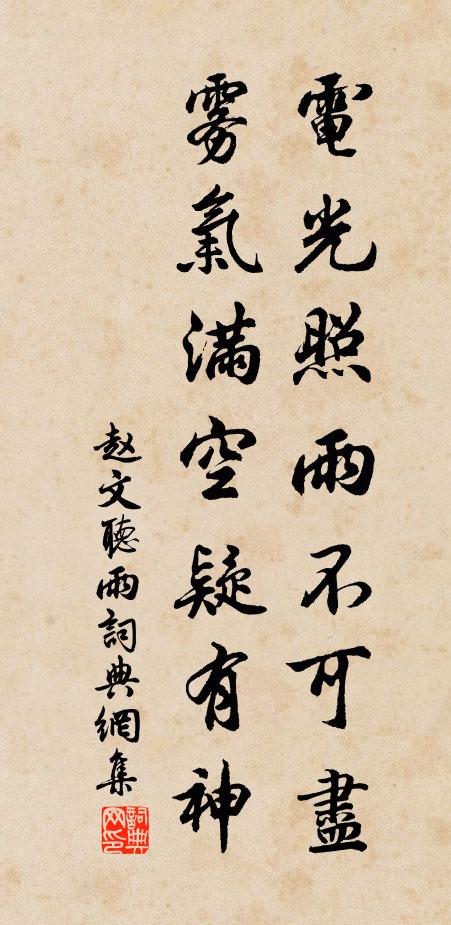 電光照雨不可盡
霧氣滿空疑有神
赵文聽雨詞典網集
詞典网印